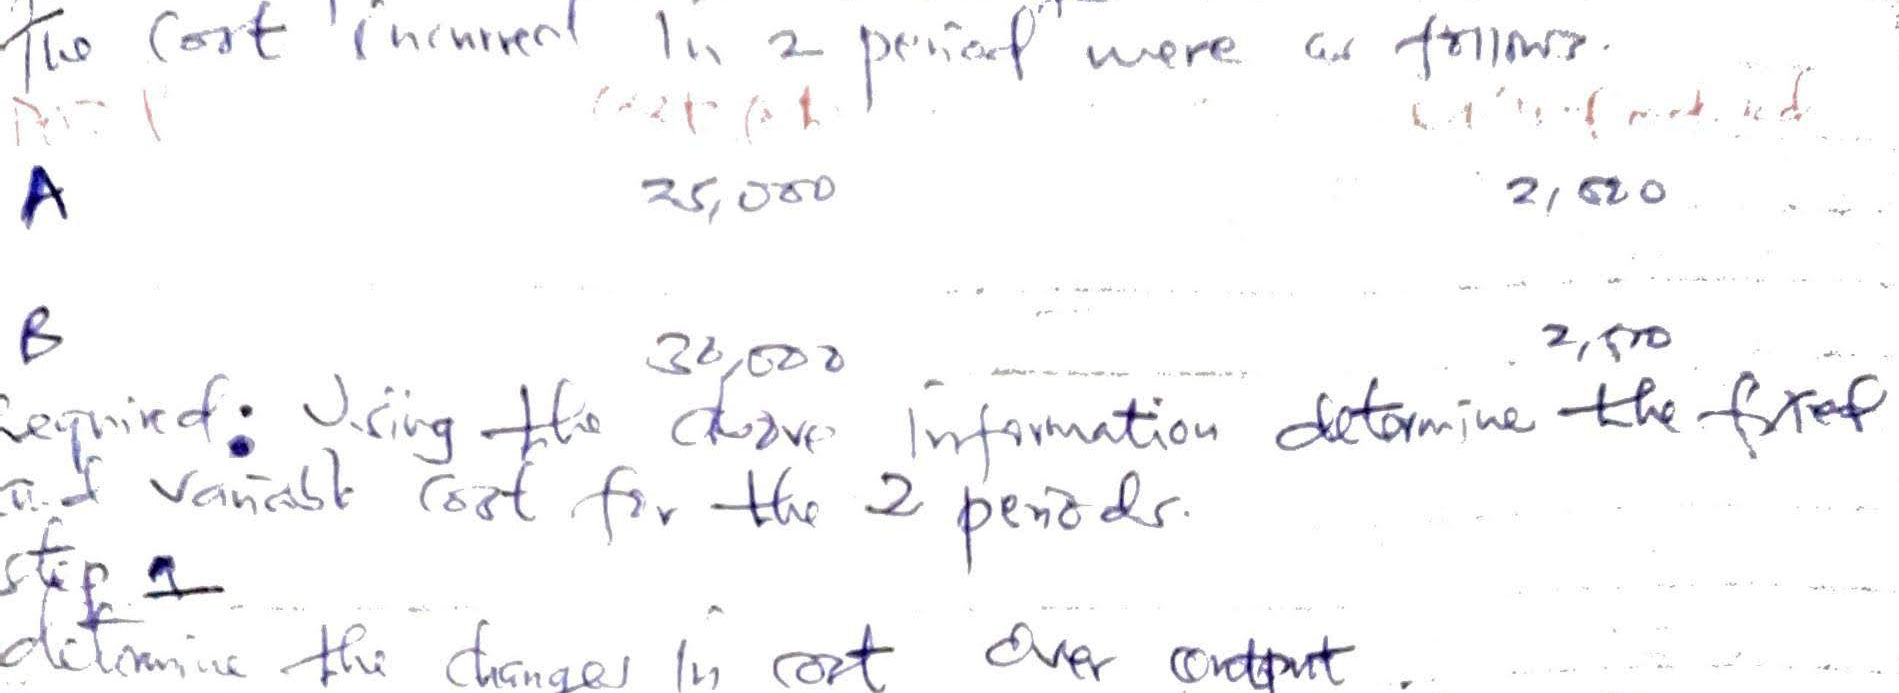 The Cost incurred in 2 period were as follows.
A 25,000 2,000
B 30,000 2,500
Required: Using the above information determine the fixed
and variable cost for the 2 periods.
Step 1
determine the changes in cost over output.